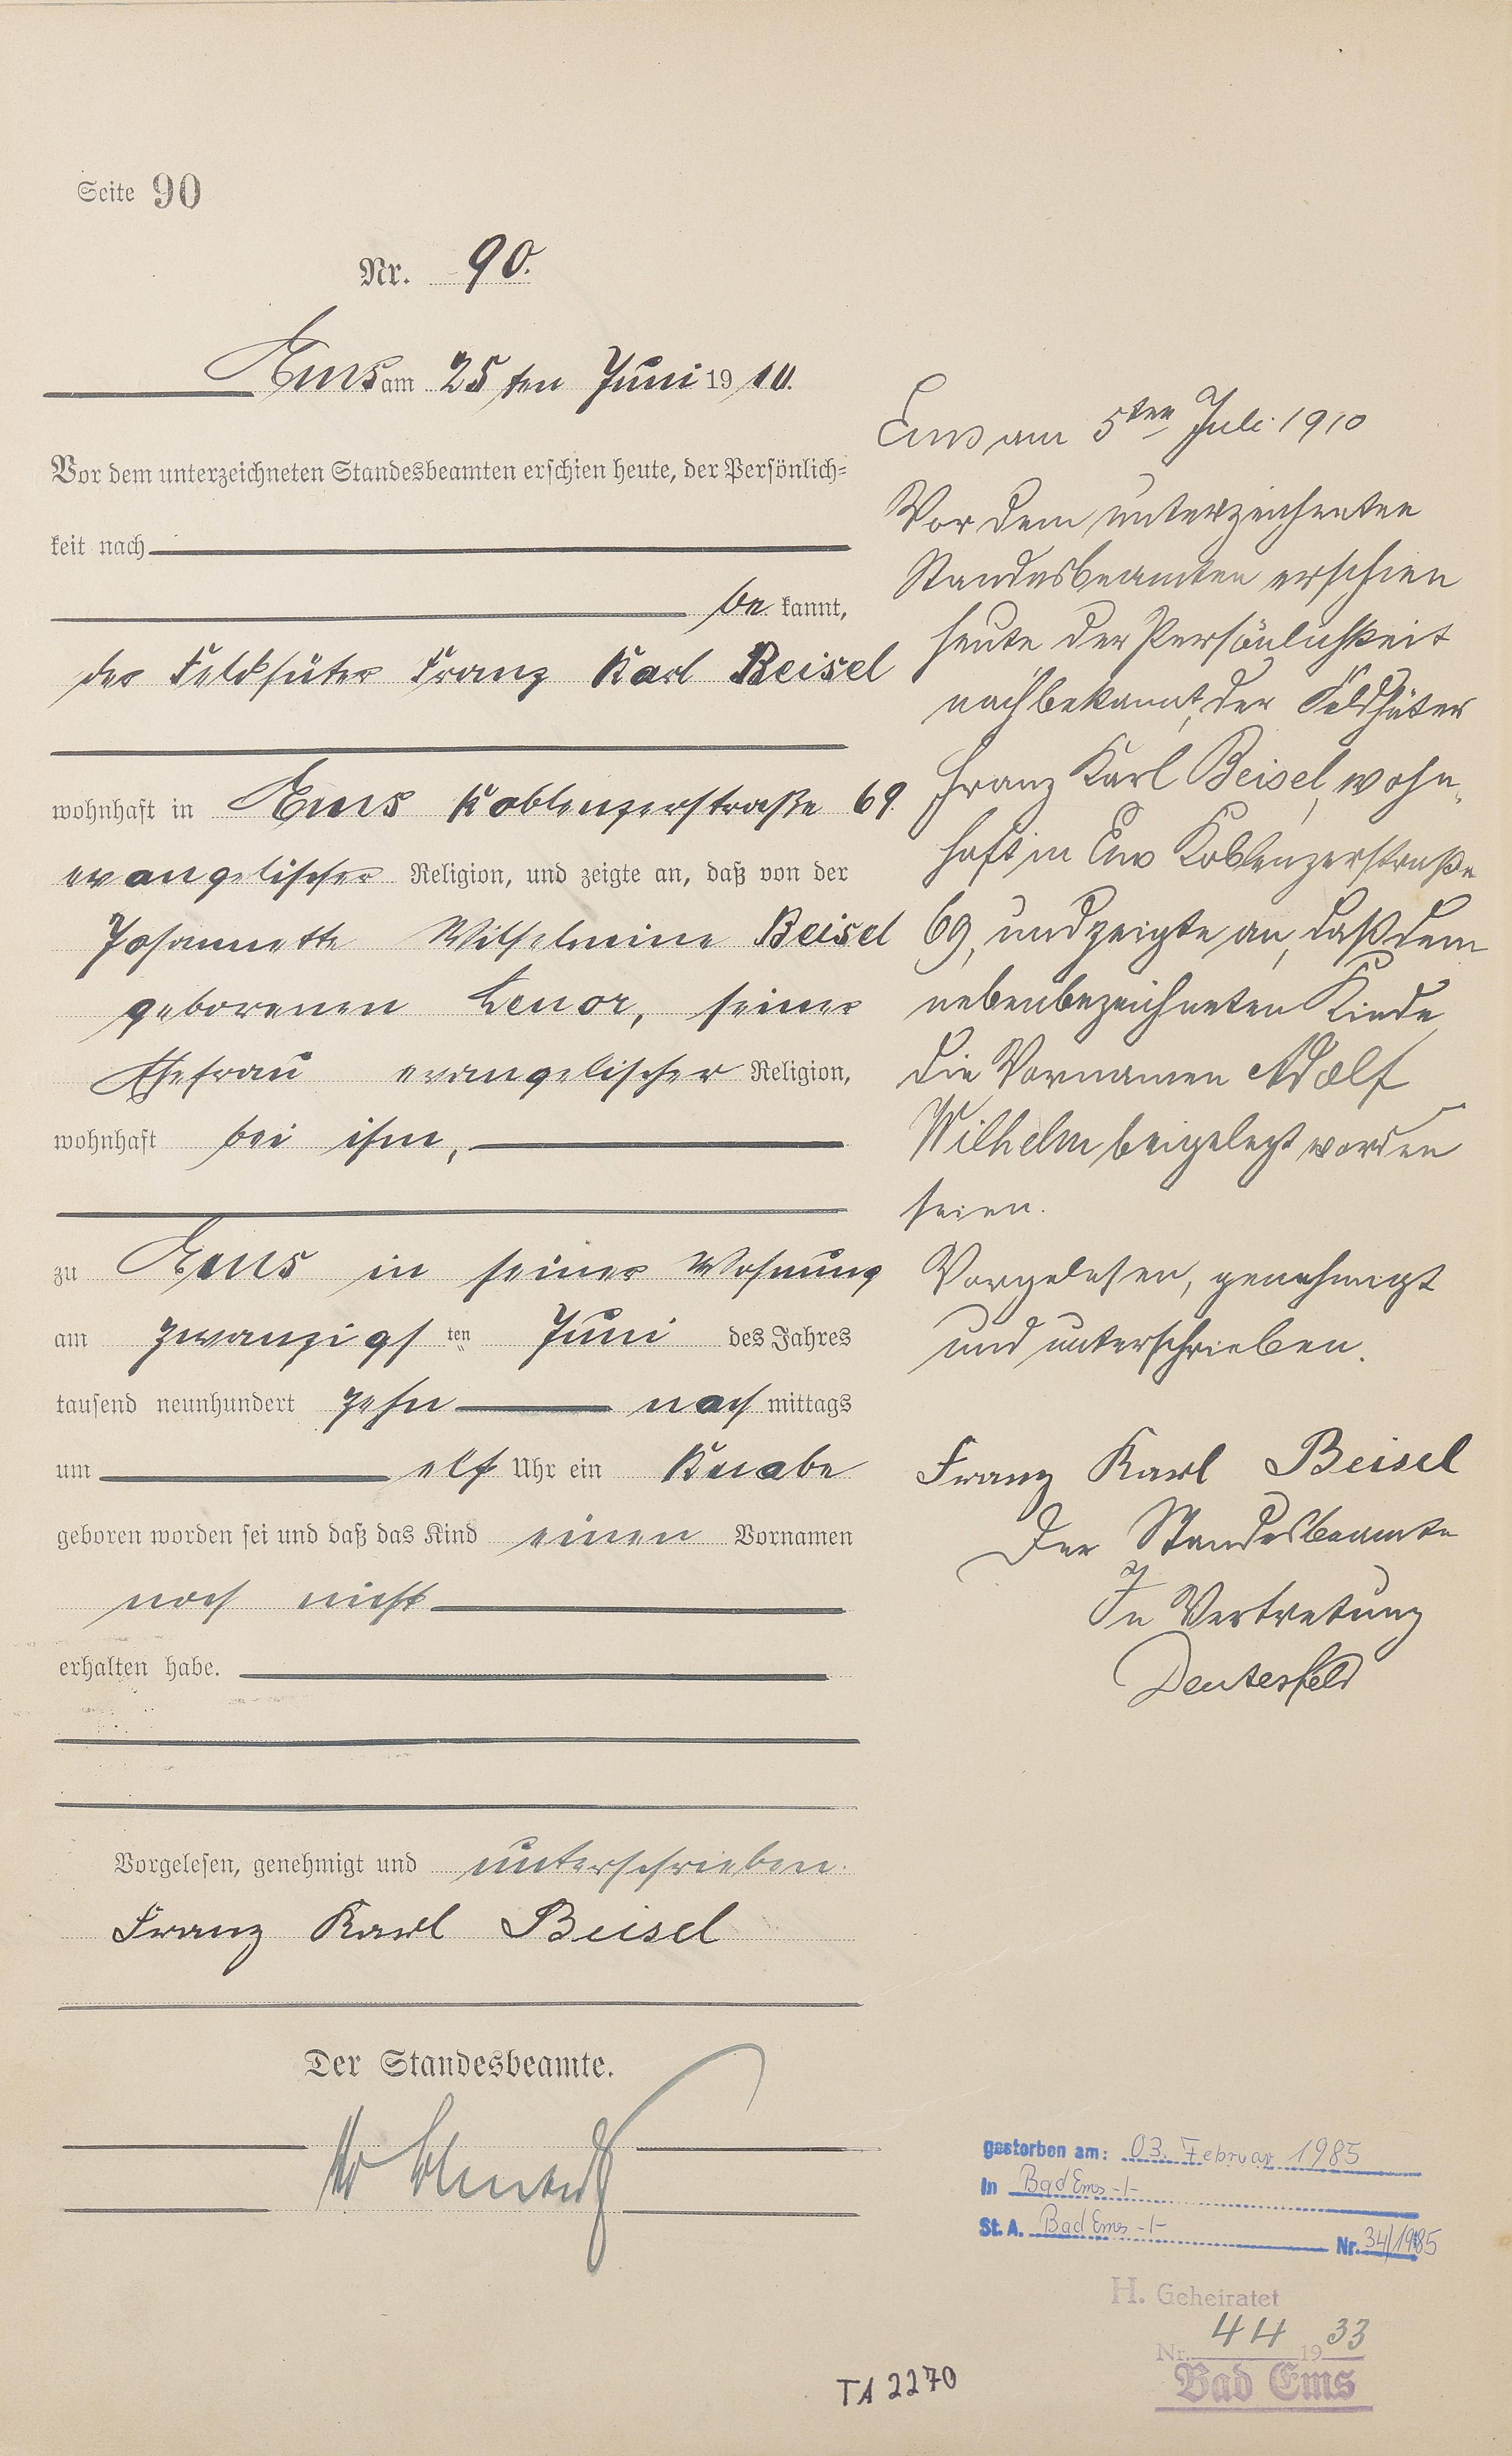 Seite 90
Nr. 90.
Ems am 25 ten Juni 1910.
Vor dem unterzeichneten Standesbeamten erschien heute, der Persönlich=
keit nach
be kannt,
der Feldhüter Franz Karl Beisel
wohnhaft in Ems Koblenzerstraße 69.
evangelischer Religion, und zeigte an, daß von der
Johannette Wilhelmine Beisel
geborenen Lenor, seiner
Ehefrau evangelischer Religion,
wohnhaft bei ihm,
zu Ems in seiner Wohnung
am zwanzigs ten Juni des Jahres
tausend neunhundert zehn nach mittags
um elf Uhr ein Knabe
geboren worden sei und daß das Kind einen Vornamen
noch nicht
erhalten habe.
Vorgelesen, genehmigt und unterschrieben.
Franz Karl Beisel
Der Standesbeamte.
Ems am 5ten Juli 1910
Vor dem unterzeichneten
Standesbeamten erschien
heute der Persönlichkeit
nach bekannt, der Feldhüter
Franz Karl Beisel, wohn-
haft in Ems Koblenzerstraße
69, und zeigte an, daß dem
nebenbezeichneten Kinde
die Vornamen Adolf
Wilhelm beigelegt worden
seien.
Vorgelesen, genehmigt
und unterschrieben.
Franz Karl Beisel
Der Standesbeamte
In Vertretung
gestorben am: 03. Februar 1985
In Bad Ems -1-
St. A. Bad Ems -1- Nr. 34/1985
H. Geheiratet
Nr. 44 1933
Bad Ems
TA 2270